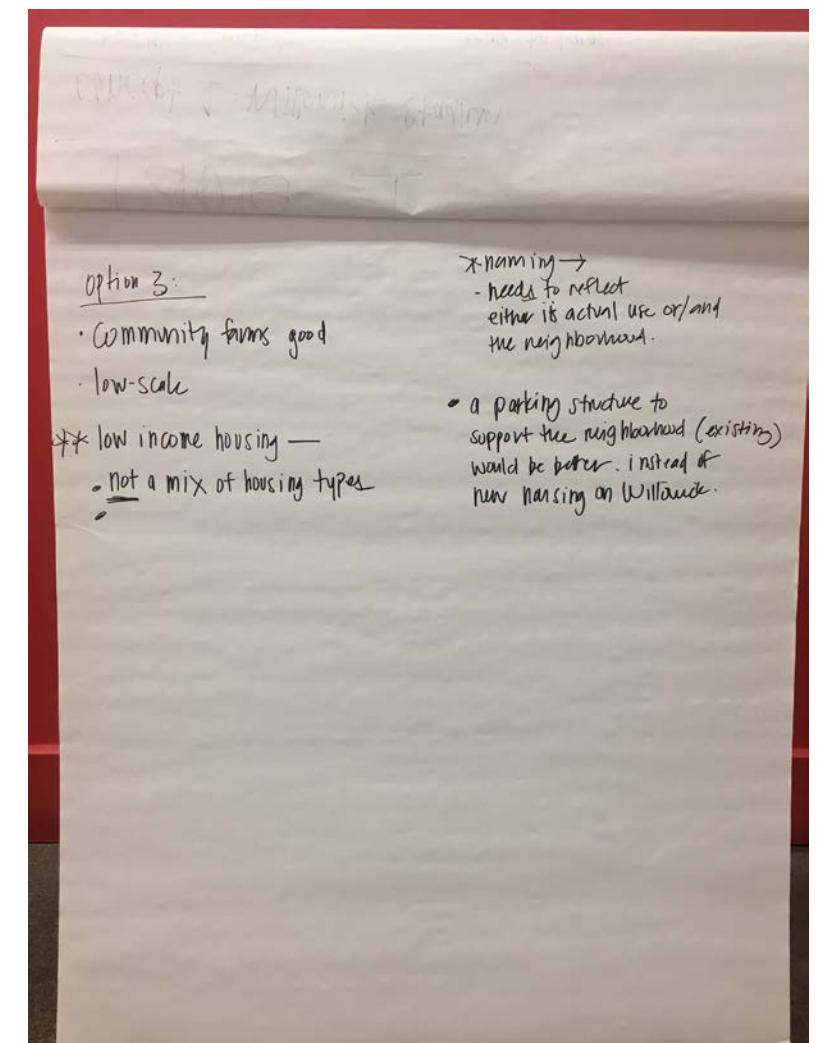 option 3:
• Community farms good
• low-scale
** low income housing —
• not a mix of housing types
•
* naming →
- needs to reflect
either its actual use or/and
the neighborhood.
• a parking structure to
support the neighborhood (existing)
would be better. instead of
new housing on